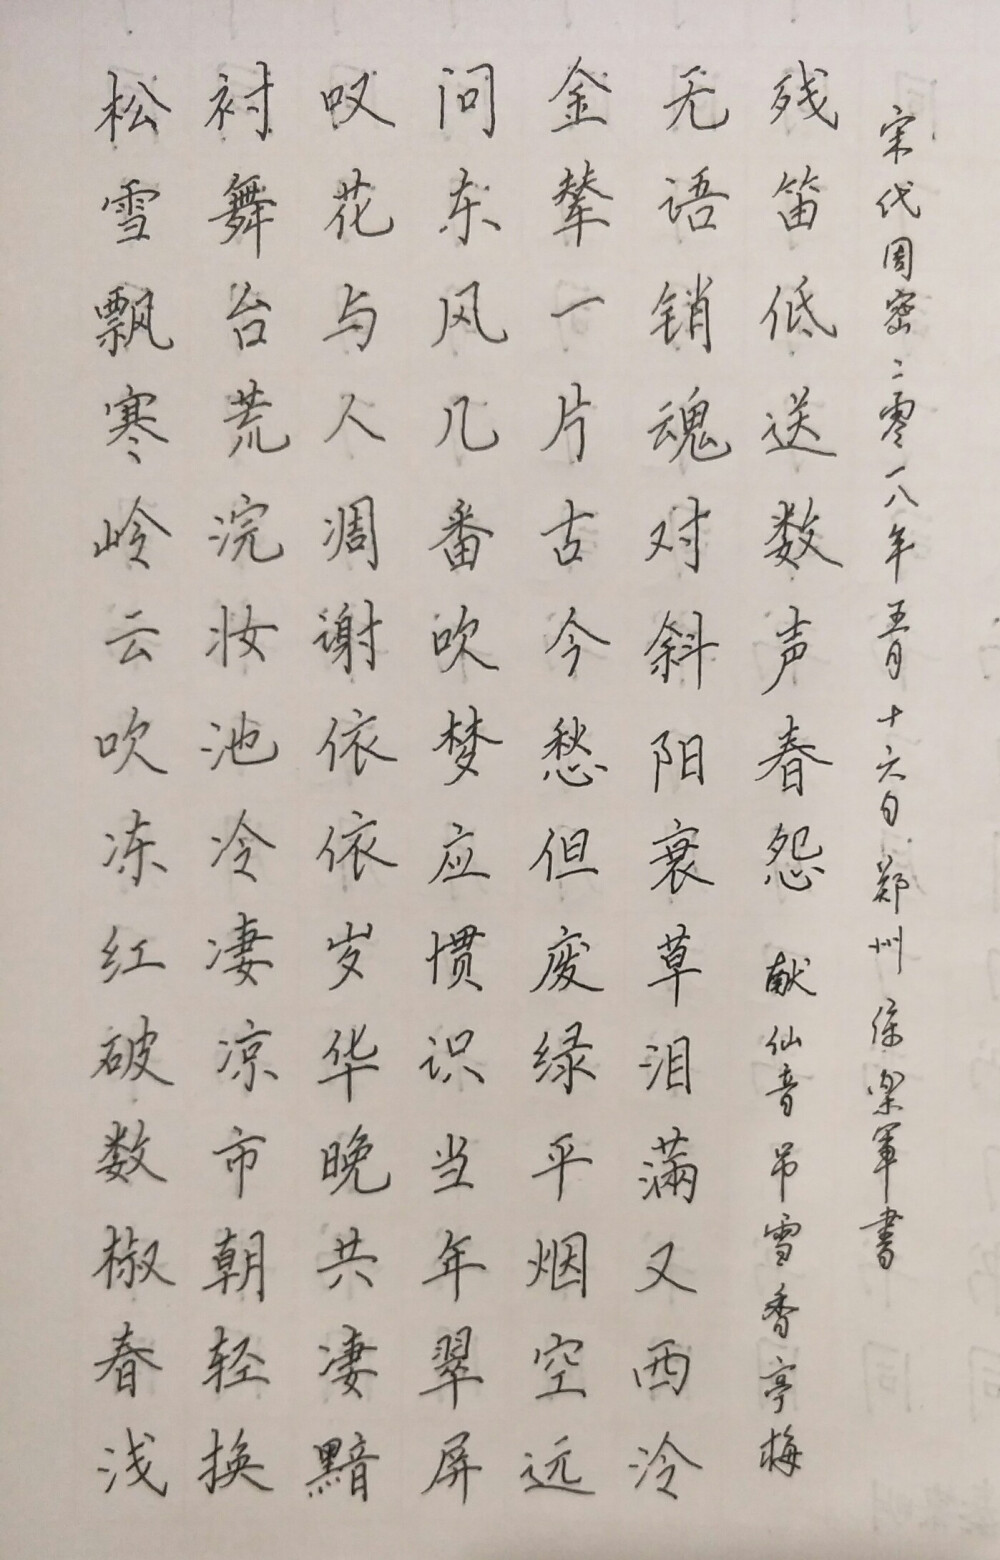 松雪飘寒岭云吹冻红破数椒春浅
衬舞台荒浣妆池冷凄凉市朝轻换
叹花与人凋谢依依岁华晚共凄黯
问东风几番吹梦应惯识当年翠屏
金辇一片古今愁但废绿平烟空远
无语销魂对斜阳衰草泪滿又西泠
残笛低送数声春怨 献仙音吊雪香亭梅
宋代周密二零一八年五月十六日郑州徐軍書